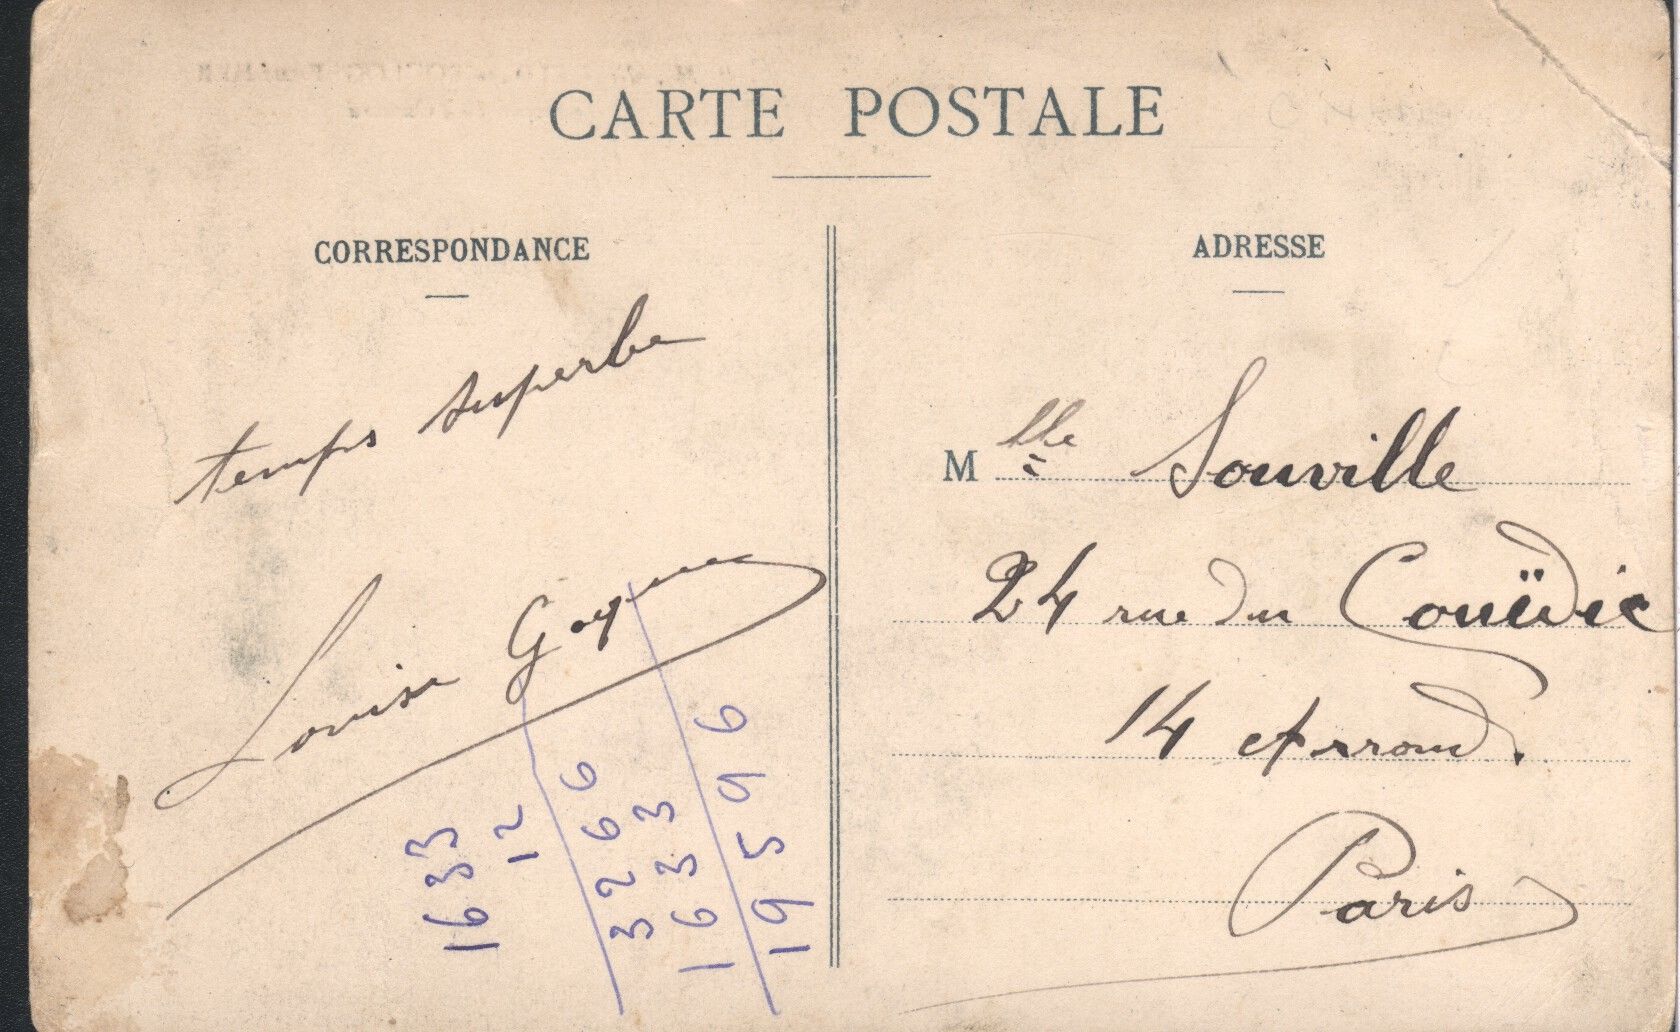 CARTE POSTALE
CORRESPONDANCE
temps superbe
Louise
1633
12
3266
1633
19596
ADRESSE
Mlle Souville
24 rue du Couëdic
14 e Arrond.
Paris